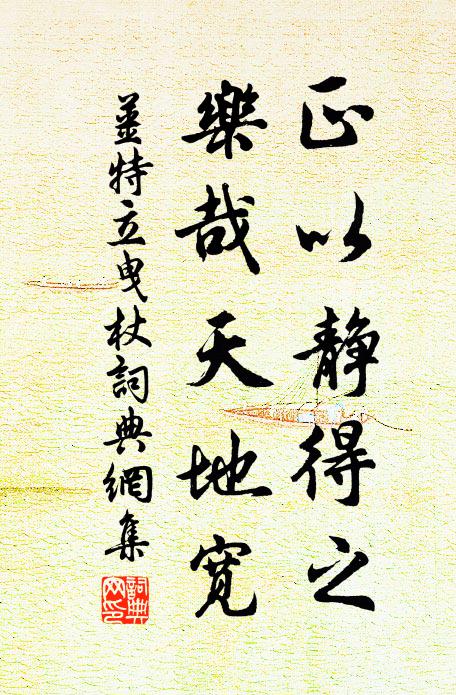 正以靜得之
樂哉天地寬
姜特立曳杖詞典網集
詞典
網印